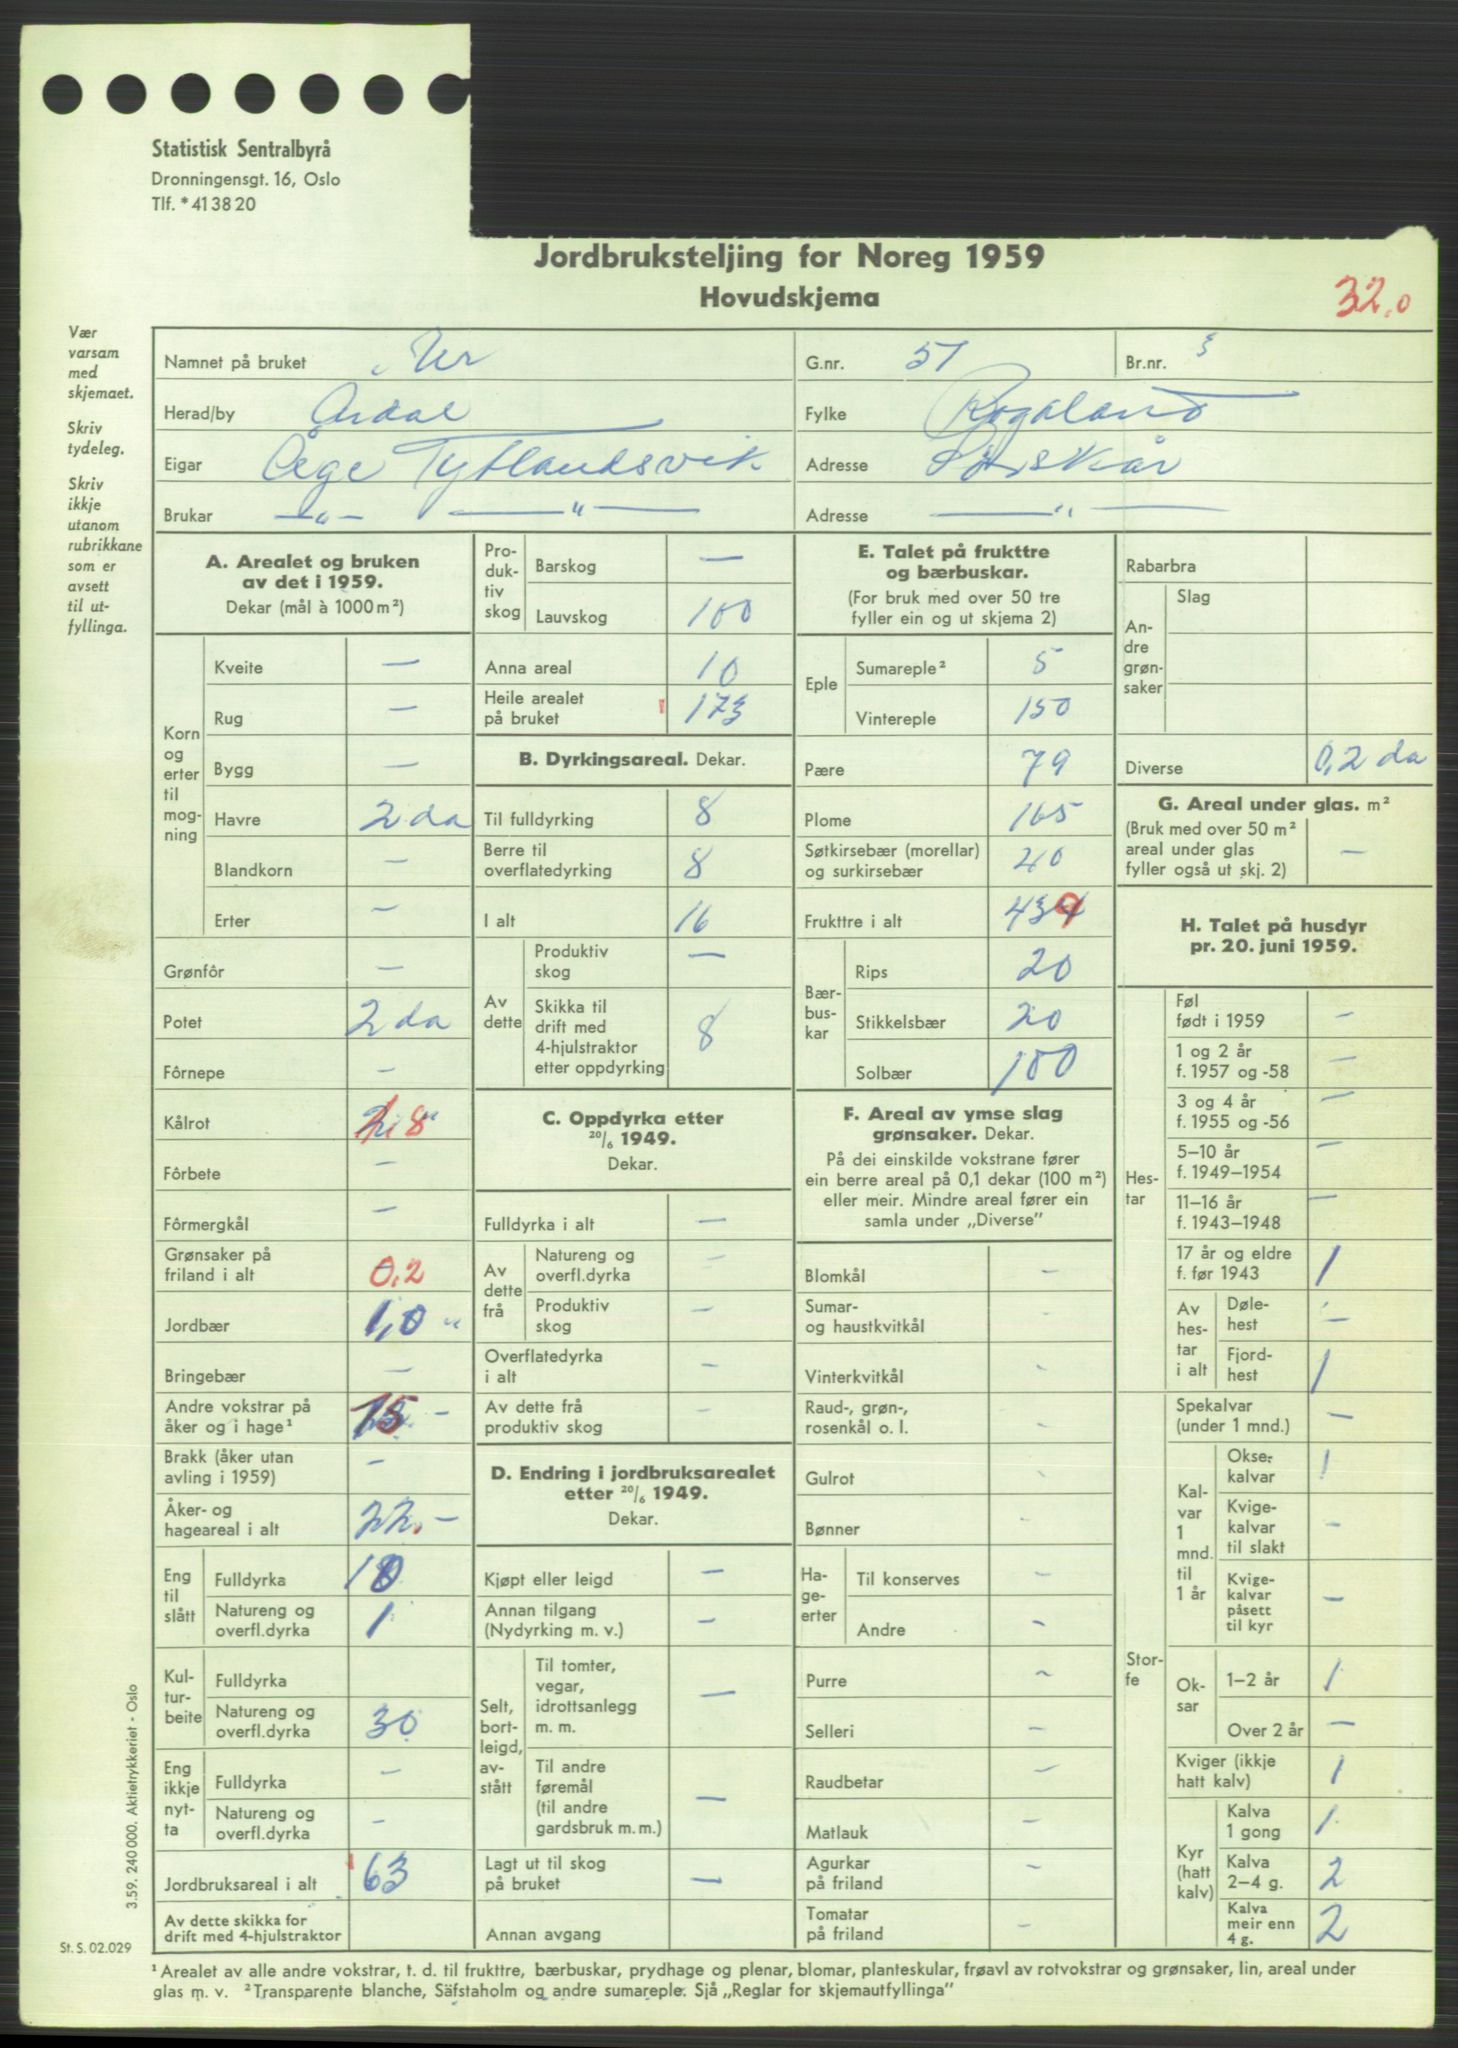 Statistisk Sentralbyrå
Dronningensgt. 16, Oslo
Tlf. * 41 38 20
Jordbruksteljing for Noreg 1959
Hovudskjema
32,0
Vær
varsam
med
skjemaet.
Skriv
tydeleg.
Skriv
ikkje
utanom
rubrikkane
som er
avsett
til ut-
fyllinga.
Namnet på bruket Ur
G.nr. 51
Br.nr. 3
Herad/by Årdal
Fylke Rogaland
Eigar Åge Tytlandsvik
Adresse
Brukar — „ — — „ —
Adresse — „ —
A. Arealet og bruken
av det i 1959.
Dekar (mål à 1000 m²)
Korn
og
erter
til
mog-
ning
Kveite —
Rug —
Bygg —
Havre 2 da
Blandkorn —
Erter —
Grønfôr —
Potet 2 da
Fôrnepe —
Kålrot 8
Fôrbete —
Fôrmergkål —
Grønsaker på
friland i alt 0,2
Jordbær 1,0 „
Bringebær —
Andre vokstrar på
åker og i hage¹ 15 —
Brakk (åker utan
avling i 1959) —
Åker- og
hageareal i alt 22. —
Eng
til
slått
Fulldyrka 10
Natureng og
overfl.dyrka 1
Kul-
tur-
beite
Fulldyrka
Natureng og
overfl.dyrka 30
Eng
ikkje
nyt-
ta
Fulldyrka —
Natureng og
overfl.dyrka —
Jordbruksareal i alt 63
Av dette skikka for
drift med 4-hjulstraktor
Pro-
duk-
tiv
skog
Barskog —
Lauvskog 100
Anna areal 10
Heile arealet
på bruket 173
B. Dyrkingsareal. Dekar.
Til fulldyrking 8
Berre til
overflatedyrking 8
I alt 16
Av
dette
Produktiv
skog —
Skikka til
drift med
4-hjulstraktor
etter oppdyrking 8
C. Oppdyrka etter
20/6 1949.
Dekar.
Fulldyrka i alt —
Av
dette
frå
Natureng og
overfl.dyrka —
Produktiv
skog —
Overflatedyrka
i alt —
Av dette frå
produktiv skog —
D. Endring i jordbruksarealet
etter 20/6 1949.
Dekar.
Kjøpt eller leigd —
Annan tilgang
(Nydyrking m. v.) —
Selt,
bort-
leigd,
av-
stått
Til tomter,
vegar,
idrottsanlegg
m. m. —
Til andre
føremål
(til andre
gardsbruk m. m.) —
Lagt ut til skog
på bruket —
Annan avgang
E. Talet på frukttre
og bærbuskar.
(For bruk med over 50 tre
fyller ein og ut skjema 2)
Eple
Sumareple² 5
Vintereple 150
Pære 79
Plome 165
Søtkirsebær (morellar)
og surkirsebær 40
Frukttre i alt 439
Bær-
bus-
kar
Rips 20
Stikkelsbær 20
Solbær 100
F. Areal av ymse slag
grønsaker. Dekar.
På dei einskilde vokstrane fører
ein berre areal på 0,1 dekar (100 m²)
eller meir. Mindre areal fører ein
samla under „Diverse”
Blomkål —
Sumar-
og haustkvitkål -
Vinterkvitkål -
Raud-, grøn-,
rosenkål o. l. -
Gulrot -
Bønner -
Ha-
ge-
erter
Til konserves -
Andre -
Purre —
Selleri —
Raudbetar —
Matlauk —
Agurkar
på friland —
Tomatar
på friland —
Rabarbra
An-
dre
grøn-
saker
Slag
Diverse 0,2 da
G. Areal under glas. m²
(Bruk med over 50 m²
areal under glas
fyller også ut skj. 2) —
H. Talet på husdyr
pr. 20. juni 1959.
Hes-
tar
Føl
født i 1959 —
1 og 2 år
f. 1957 og -58 —
3 og 4 år
f. 1955 og -56 —
5–10 år
f. 1949–1954 —
11–16 år
f. 1943–1948 —
17 år og eldre
f. før 1943 1
Av
hes-
tar
i alt
Døle-
hest —
Fjord-
hest 1
Stor-
fe
Spekalvar
(under 1 mnd.) —
Kal-
var
1
mnd.
til
1 år
Okse-
kalvar 1
Kvige-
kalvar
til slakt —
Kvige-
kalvar
påsett
til kyr —
Ok-
sar
1–2 år 1
Over 2 år —
Kviger (ikkje
hatt kalv) 1
Kyr
(hatt
kalv)
Kalva
1 gong 1
Kalva
2–4 g. 2
Kalva
meir enn
4 g. 2
3.59. 240 000. Aktietrykkeriet - Oslo
St. S. 02.029
¹ Arealet av alle andre vokstrar, t. d. til frukttre, bærbuskar, prydhage og plenar, blomar, planteskular, frøavl av rotvokstrar og grønsaker, lin, areal under
glas m. v. ² Transparente blanche, Säfstaholm og andre sumareple. Sjå „Reglar for skjemautfyllinga”